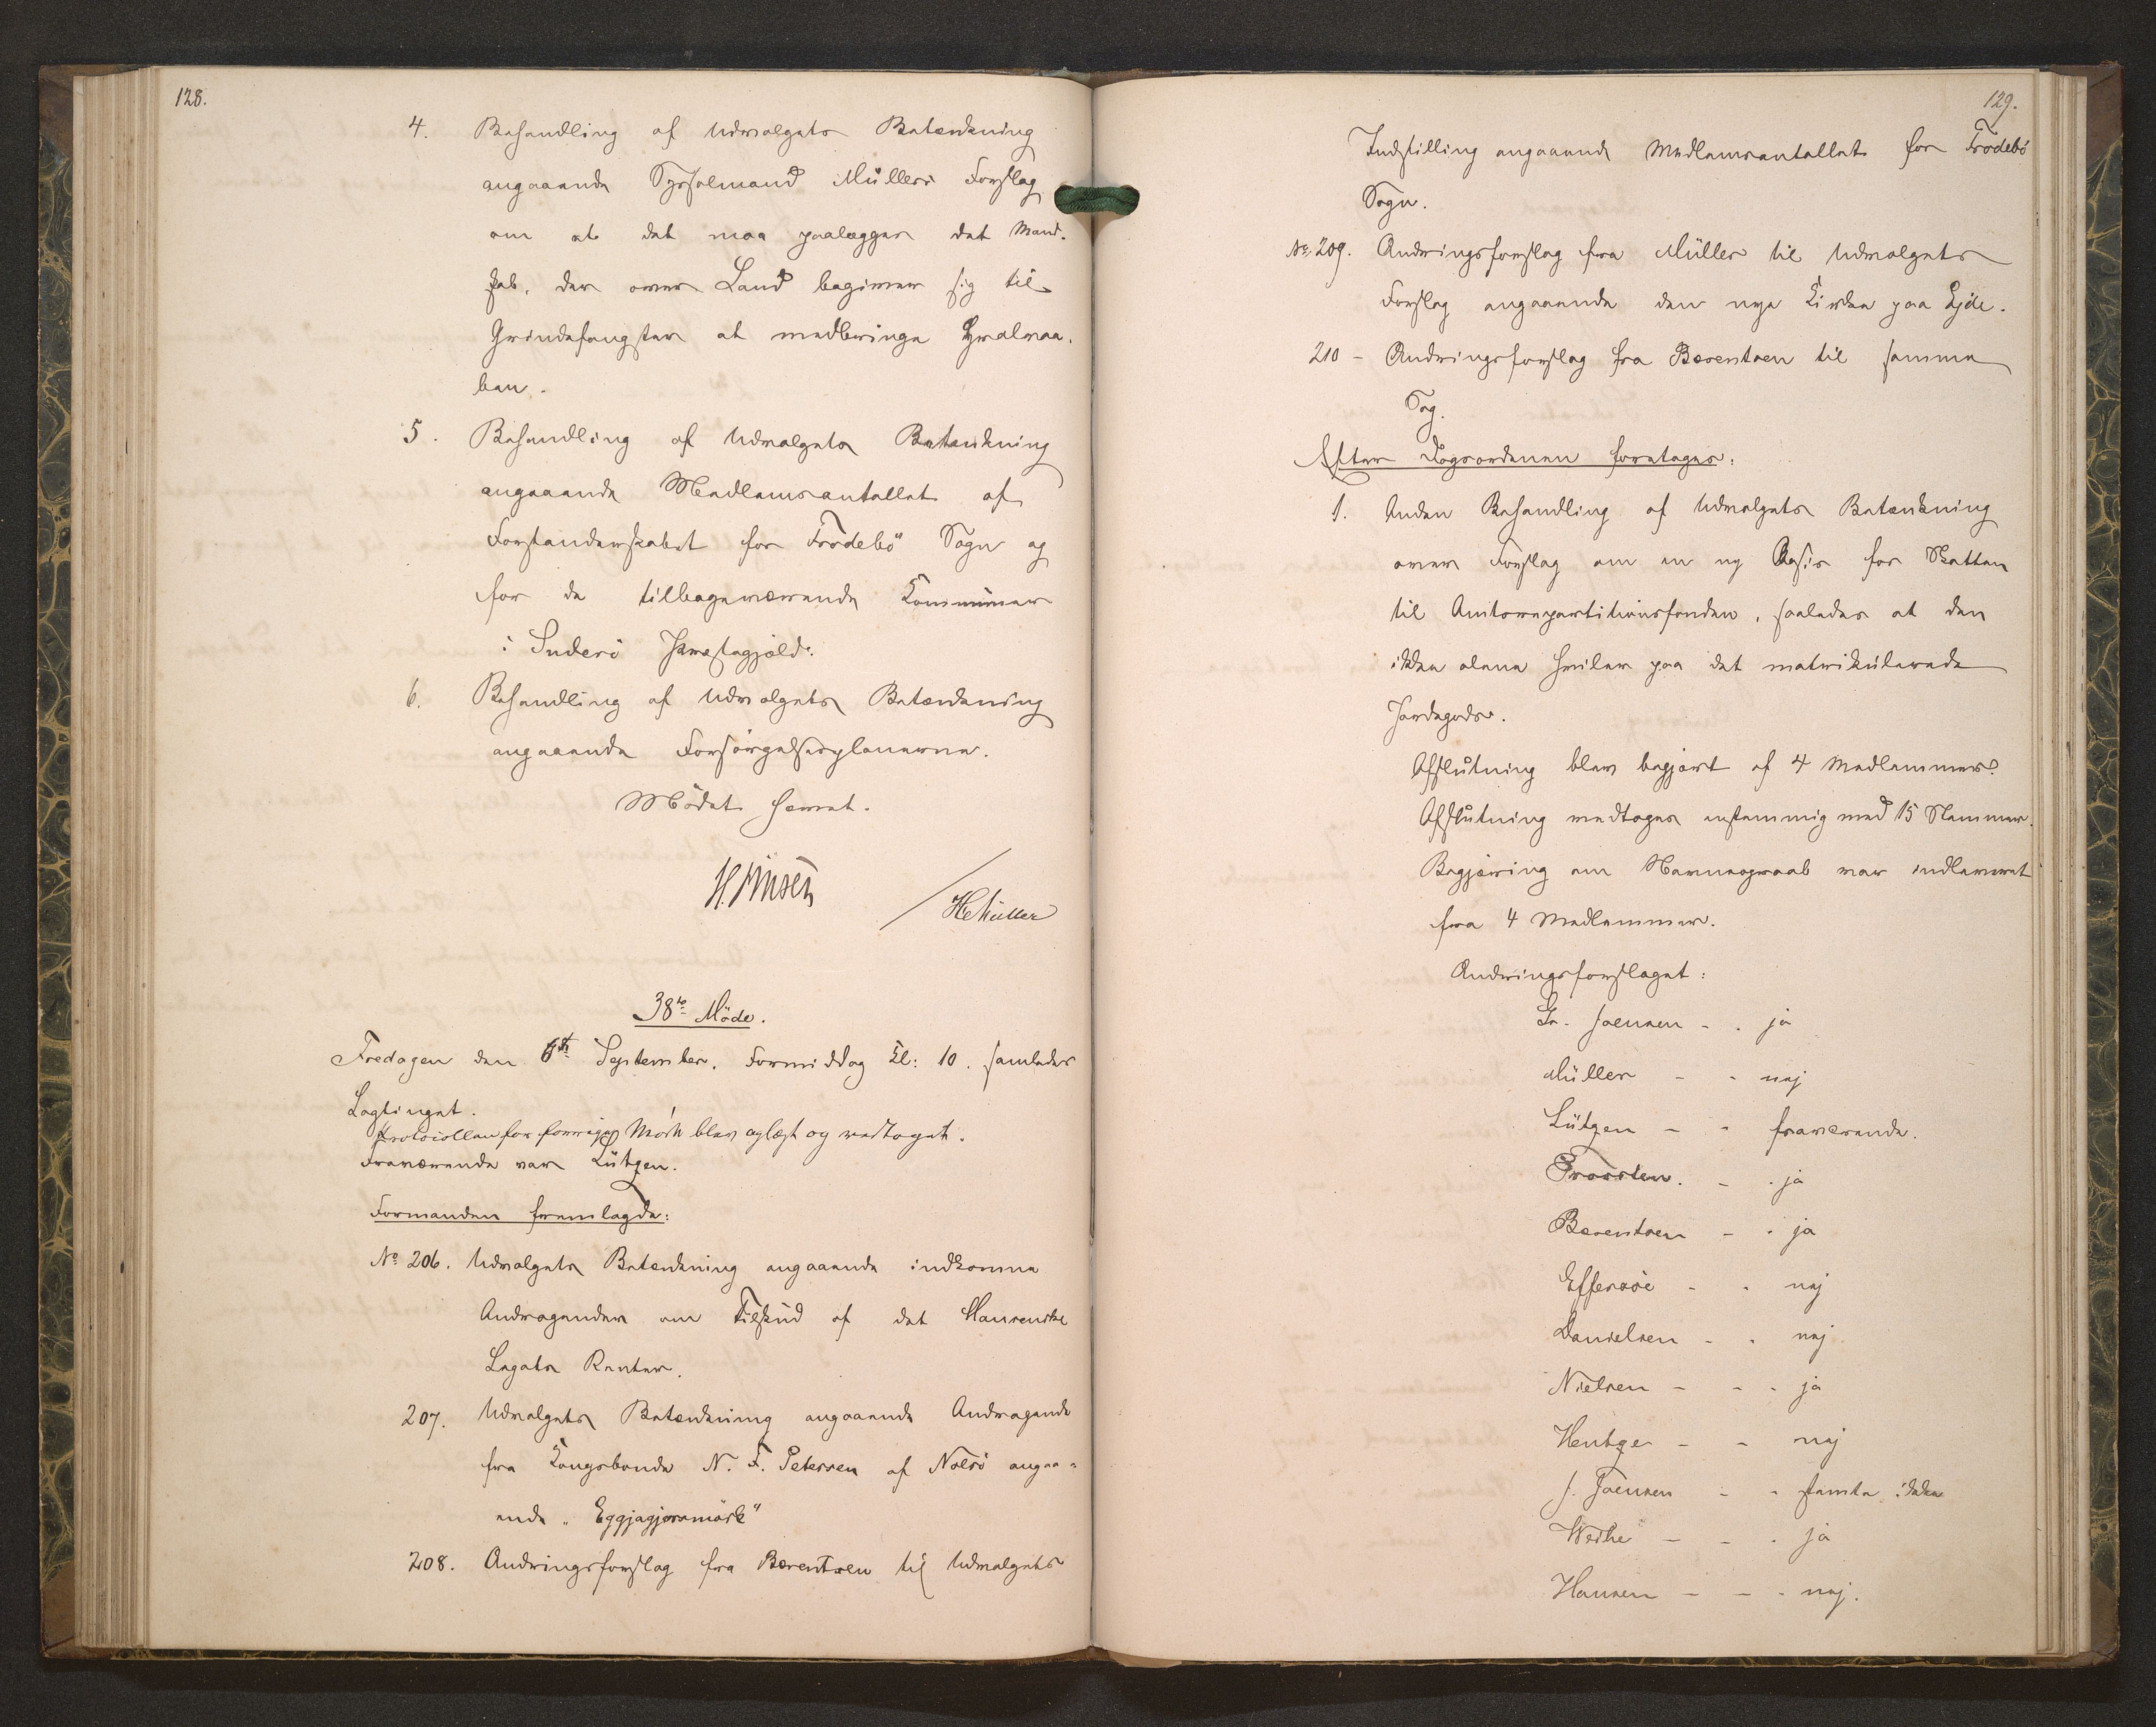 128.
4. Behandling af Udvalgets Betænkning
angaaende Sysselmand Müllers Forslag
om at det maa paalægges det Mand-
skab, der over Land begiver sig til
Grindefangster at medbringe Hvalvaa-
ben.
5. Behandling af Udvalgets Betænkning
angaaende Medlemsantallet af
Forstanderskabet for Frodebö Sogn og
for de tilbageværende Kommuner
i Suderö Præstegjæld.
6. Behandling af Udvalgets Betænkning
angaaende Forsörgelsesplanerne.
Mödet hævet.
HMüller
38te Möde.
Fredagen den 6te September, Formiddag Kl: 10. samledes
Lagtinget.
Protocollen for forrige Möde blev oplæst og vedtaget.
Fraværende var Lützen.
Formanden fremlagde:
No 206. Udvalgets Betænkning angaaende indkomne
Andragender om Tilskud af det Hansenske
Legats Renter.
207. Udvalgets Betænkning angaaende Andragende
fra Kongsbonde N. F. Petersen af Nolsö angaa-
ende "Eggjagjoramörk"
208. Ændringsforslag fra Bærentsen til Udvalgets
129.
Indstilling angaaende Medlemsantallet for Frodebö
Sogn.
No. 209. Ændringsforslag fra Müller til Udvalgets
Forslag angaaende den nye Kirke paa Ejde.
210 - Ændringsforslag fra Bærentsen til samme
Sag.
Efter Dagsordenen foretages:
1. Anden Behandling af Udvalgets Betænkning
over Forslag om en ny Basis for Skatten
til Amtsrepartitionsfonden, saaledes at den
ikke alene hviler paa det matrikulerede
Jordegods.
Afslutning blev begjært af 4 Medlemmer.
Afslutning vedtoges enstemmig med 15 Stemmer.
Begjæring om Navneopraab var indleveret
fra 4 Medlemmer.
Ændringsforslaget:
Joensen - - ja
Müller - - nej
Lützen - - fraværende.
Bærentsen - - ja
Effersöe - - nej
Danielsen - - nej
Nielsen - - - ja
Hentze - - nej
J. Joensen - - stemte ikke
Weihe - - - ja
Hansen - - - nej.